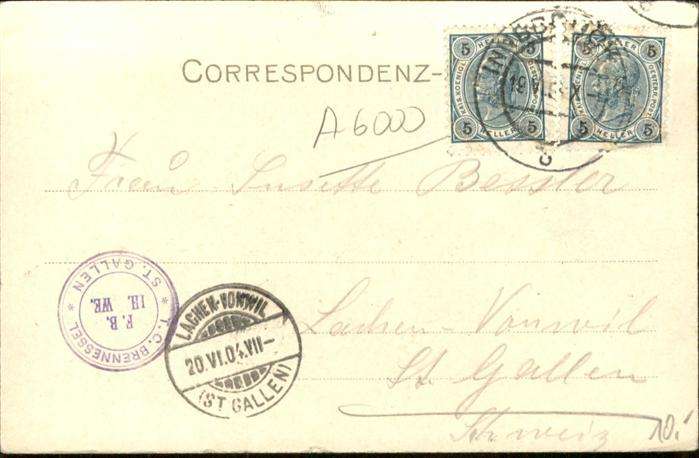 CORRESPONDENZ-
5 HELLER 5
5 HELLER 5
INNSBRUCK
A 6000
Frau Susette Bessler
Lachen-Vonwil
St. Gallen
Schweiz
10.-
LACHEN-VONWIL
20.VI.04.VII-
(ST GALLEN)
T. C. BRENNESSEL * ST. GALLEN *
F. B.
IH. WE.